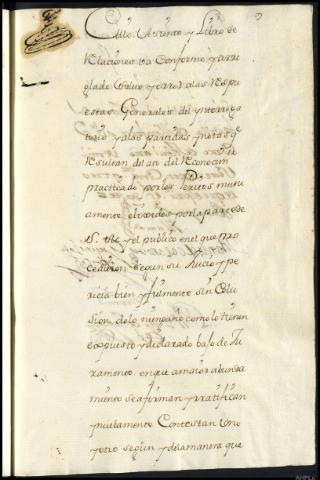 Este Asiento y Libro de
Relaciones va conforme y arre
glado salvo yerro a las Respu
estas Generales del ynterroga
torio y a las partidas y notas q.e
Resultan del acto del Reconocim.to
practicado por los Peritos mutu
amente elexidos por la parte de
S. M. y el publico en el que pro
cedieron segun su Juicio y pe
ricia bien y fielmente sin Colu
sion, dolo ni engaño como lo tienen
expuesto y declarado bajo de Ju
ramento en que a mayor abunda
miento se afirman y rratifican
y nuebamente Contestan Uno
y otro segun y de la manera que